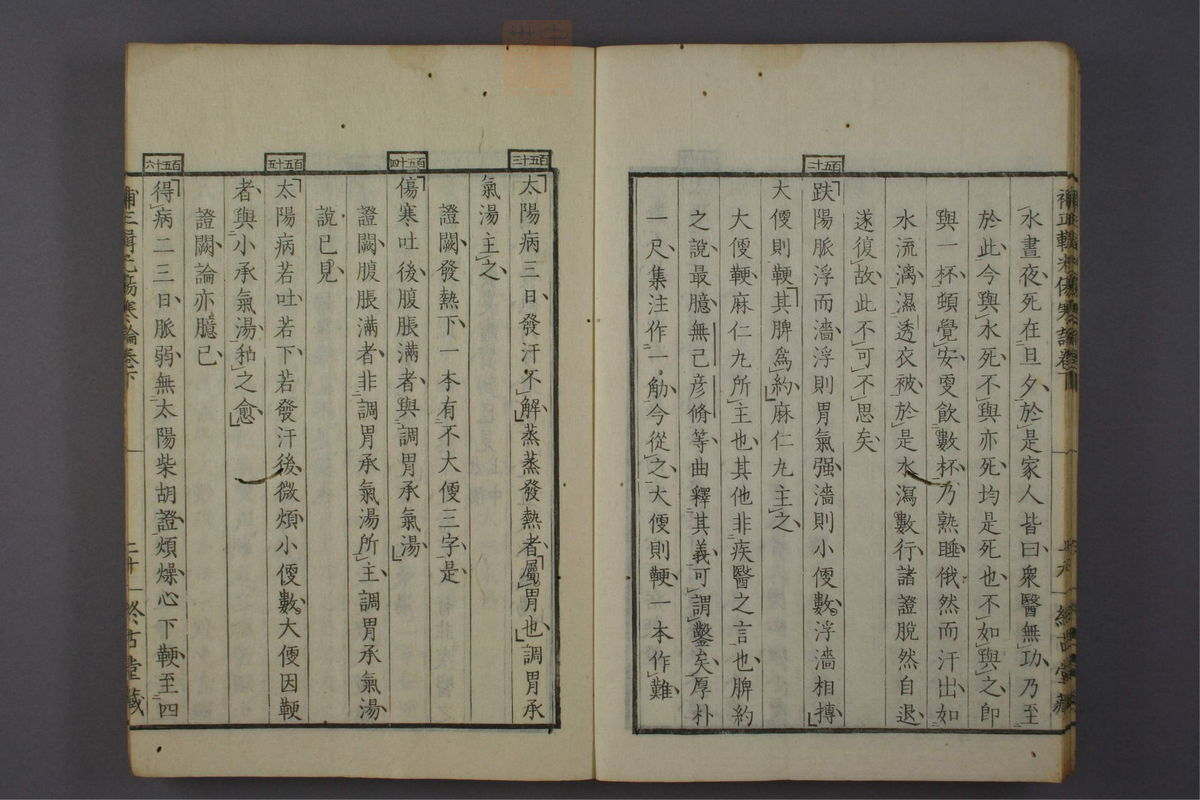 水晝夜死在旦夕於是家人皆曰衆醫無功乃至
於此今與水死不與亦死均是死也不如與之卽
與一杯頓覺安更飮數杯乃熟睡俄然而汗出如
水流漓濕透衣被於是水瀉數行諸證脫然自退
遂復故此不可不思矣
百五十二
趺陽脈浮而濇浮則胃氣强濇則小便數浮濇相摶
大便則鞕其脾爲約麻仁丸主之
大便鞕麻仁丸所主也其他非疾醫之言也脾約
之說最臆無己彥脩等曲釋其義可謂鑿矣厚朴
一尺集注作一觔今從之大便則鞕一本作難
百五十三
太陽病三日發汗不解蒸蒸發熱者屬胃也調胃承
氣湯主之
證闕發熱下一本有不大便三字是
百五十四
傷寒吐後腹脹滿者與調胃承氣湯
證闕腹脹滿者非調胃承氣湯所主調胃承氣湯
說已見
百五十五
太陽病若吐若下若發汗後微煩小便數大便因鞕
者與小承氣湯和之愈
證闕論亦臆已
百五十六
得病二三日脈弱無太陽柴胡證煩燥心下鞕至四
傷寒論卷下 二十一 終古堂藏